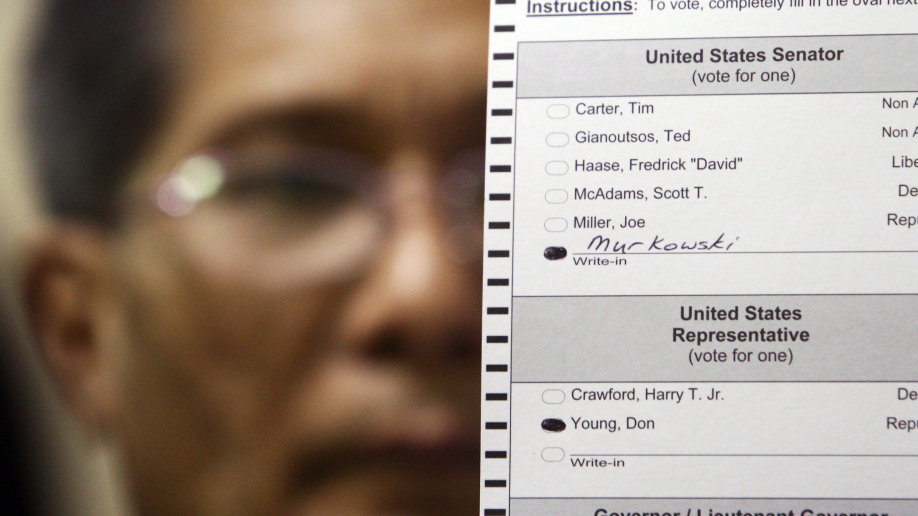 Instructions: To vote, completely fill in the oval next
United States Senator
(vote for one)
Carter, Tim Non A
Gianoutsos, Ted Non A
Haase, Fredrick "David" Libe
McAdams, Scott T. De
Miller, Joe Rep
Murkowski
Write-in
United States
Representative
(vote for one)
Crawford, Harry T. Jr. De
Young, Don Rep
Write-in
Governor / Lieutenant Governor